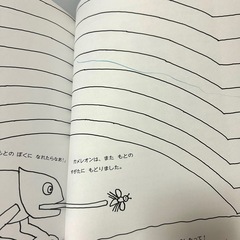 もとの ぼくに なれたらなあ！。
カメレオンは、また もとの
すがたに もどりました。